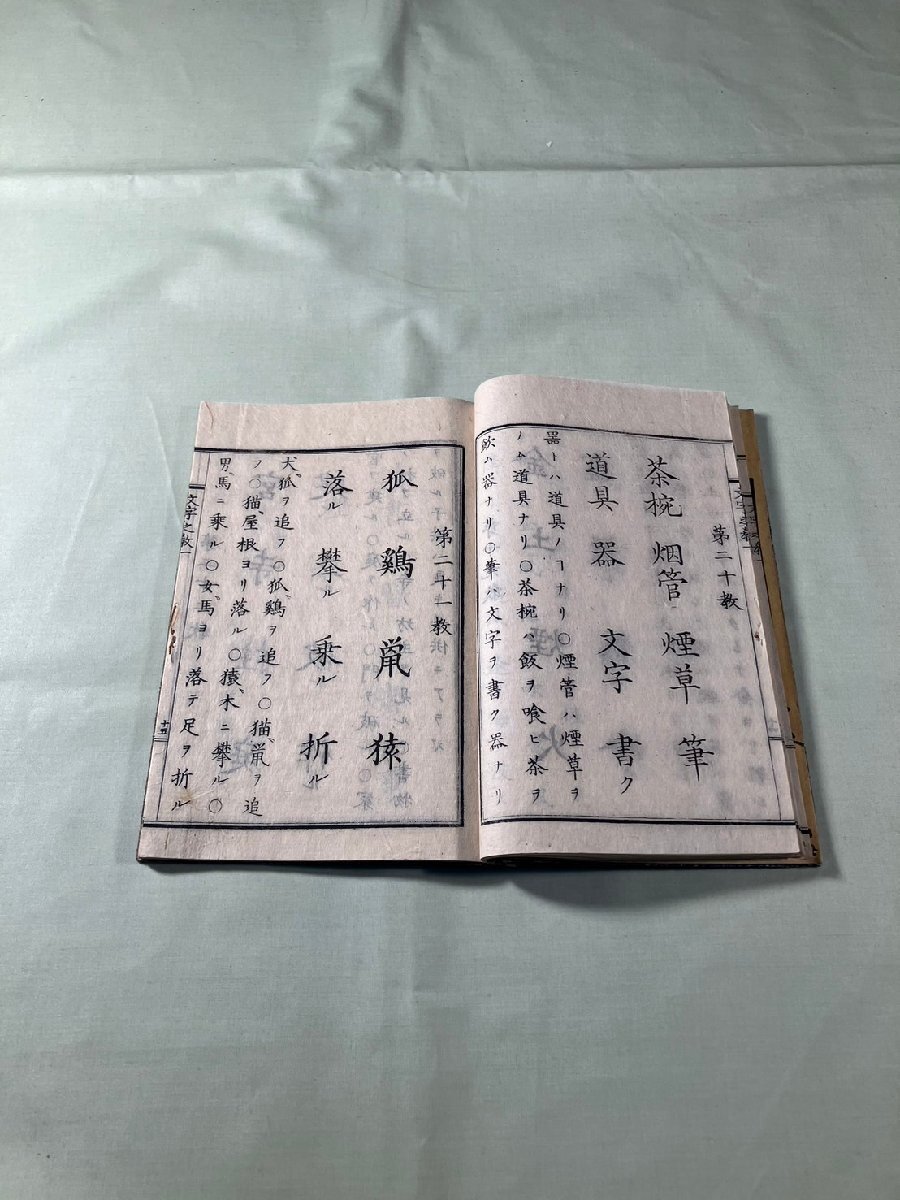 第二十教
茶椀 烟管 煙草 筆
道具 器 文字 書ク
器トハ道具ノヿナリ○煙管ハ煙草ヲ
ノム道具ナリ○茶椀ハ飯ヲ喰ヒ茶ヲ
飲ム器ナリ○筆ハ文字ヲ書ク器ナリ
第二十一教
狐 鷄 鼠 猿
落ル 攀ル 乗ル 折ル
犬、狐ヲ追フ○狐、鷄ヲ追フ○猫、鼠ヲ追
フ○猫、屋根ヨリ落ル○猿、木ニ攀ル○
男、馬ニ乗ル○女、馬ヨリ落テ足ヲ折ル
文字之教
十四